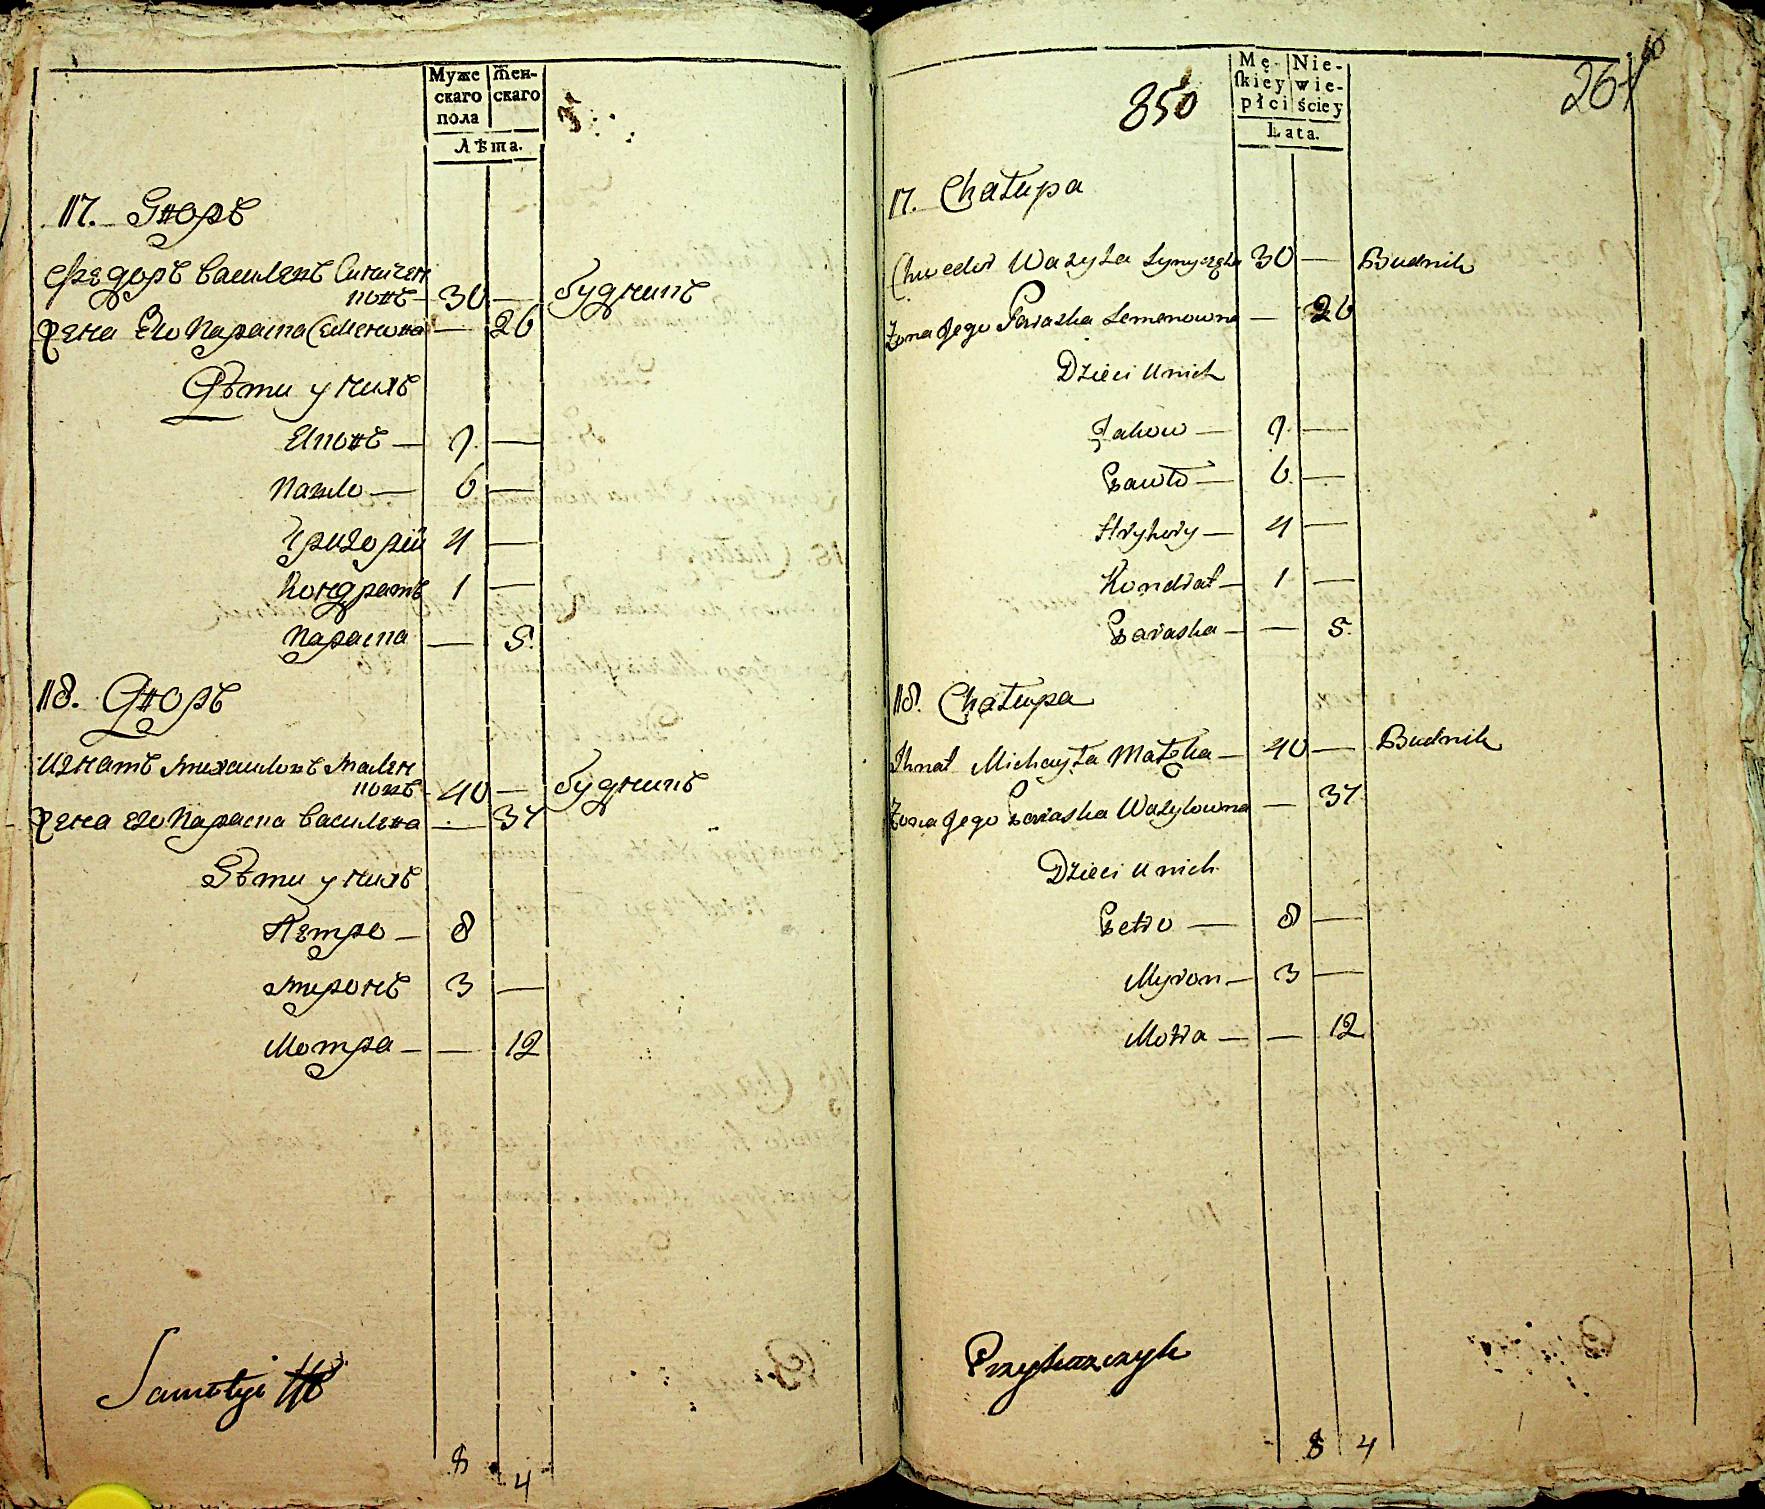 Муже
скаго
пола
Жен-
скаго
Лѣта.
117. Дворъ
Федоръ Василевъ Синичен
ковъ — 30 — будникъ
Жена Его Параска Семенова — 26
Дѣти у нихъ
Яковъ — 9. —
Павло — 6 —
Григорій 4 —
Кондратъ 1 —
Параска — 5.
118. Дворъ
Игнатъ Михаиловъ Мален
ковъ - 40 — будникъ
Жена его Параска Василева — 37
Дѣти у нихъ
Петро — 8
Миронъ 3 —
Мотра — — 12
8 4
850
264
Mę-
skiey
płci
Nie-
wie-
ściey
Lata.
117. Chałupa
Chwedor Wasyla 30 — Budnik
Żona Jego Paraska Semenowna — 26
Dzieci u nich
Jakow — 9. —
Pawło — 6. —
Hryhory — 4 —
Kondrat — 1 —
Paraska — — 5.
118. Chałupa
Ihnat Michayła — 40 — Budnik
Żona Jego Paraska Wasylowna — 37
Dzieci u nich
Petro — 8 —
Myron — 3 —
Motra — — 12
8 4